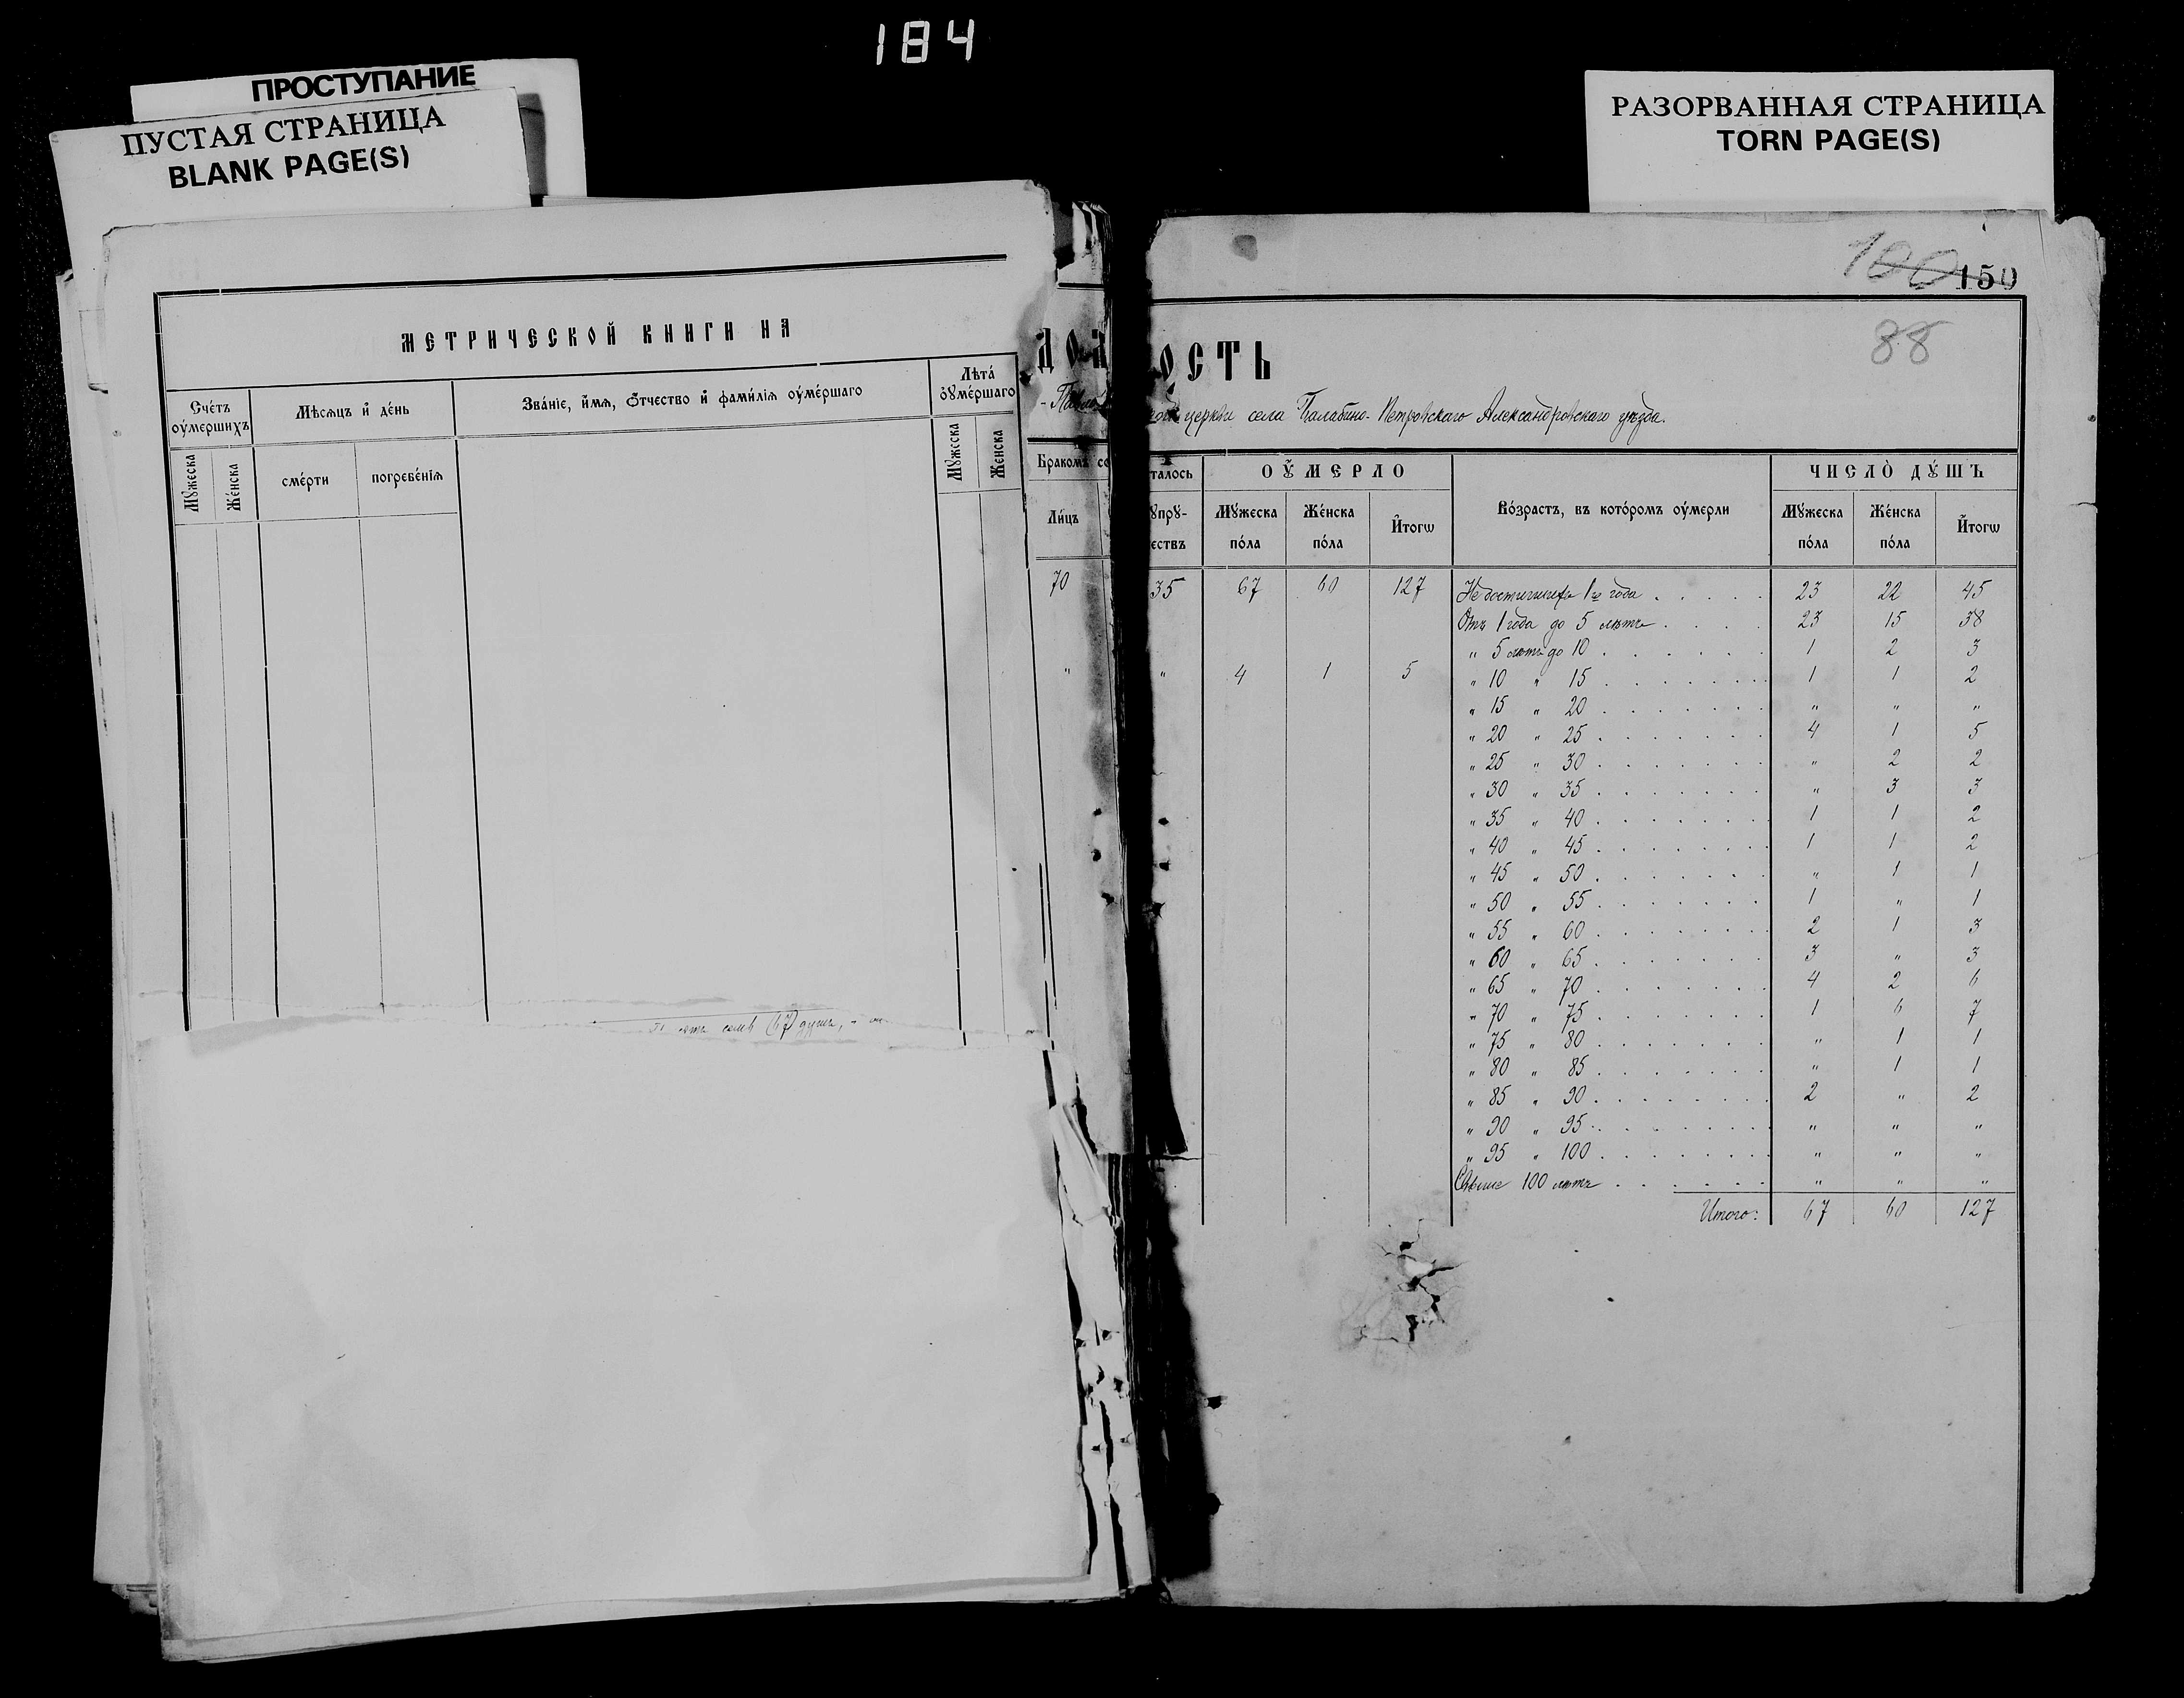 184
ПРОСТУПАНИЕ
ПУСТАЯ СТРАНИЦА
BLANK PAGE(S)
РАЗОРВАННАЯ СТРАНИЦА
TORN PAGE(S)
МЕТРИЧЕСКОЙ КНИГИ НА
Сче́тъ оу҆ме́ршихъ
Мѣ́сѧцъ и҆ де́нь
Зва́нїе, и҆́мѧ, ѻ҆́тчество и҆ фами́лїѧ оу҆ме́ршаго
Лѣта̀ оу҆ме́ршаго
Мꙋ́жеска
Же́нска
сме́рти
погребе́нїѧ
Мꙋ́жеска
Же́нска
семь (67) душъ,
100 150
88
ОСТЬ
церкви села Балабино-Петровскаго Александровскаго уѣзда.
Бракомъ со талось
ОУ҆МЕРЛО
Во́зрастъ, въ кото́ромъ оу҆́мерли
ЧИСЛО̀ ДꙊ́ШЪ
Ли́цъ
Мꙋ́жеска по́ла
Же́нска по́ла
И҆того̀
Мꙋ́жеска по́ла
Же́нска по́ла
И҆того̀
70 35 67 60 127 Недостигшихъ 1го года . . . . . 23 22 45
Отъ 1 года до 5 лѣтъ . . . . 23 15 38
" 5 лѣтъ до 10 . . . . . . 1 2 3
" " 4 1 5 " 10 " 15 . . . . . . . 1 1 2
" 15 " 20 . . . . . . . " " "
" 20 " 25 . . . . . . . 4 1 5
" 25 " 30 . . . . . . . " 2 2
" 30 " 35 . . . . . . . " 3 3
" 35 " 40 . . . . . . . 1 1 2
" 40 " 45 . . . . . . . 1 1 2
" 45 " 50 . . . . . . . " 1 1
" 50 " 55 . . . . . . . 1 " 1
" 55 " 60 . . . . . . . 2 1 3
" 60 " 65 . . . . . . . 3 " 3
" 65 " 70 . . . . . . . 4 2 6
" 70 " 75 . . . . . . . 1 6 7
" 75 " 80 . . . . . . . " 1 1
" 80 " 85 . . . . . . . " 1 1
" 85 " 90 . . . . . . . 2 " 2
" 90 " 95 . . . . . . . " " "
" 95 " 100 . . . . . . . " " "
Свыше 100 лѣтъ . . . . . . " " "
Итого: 67 60 127